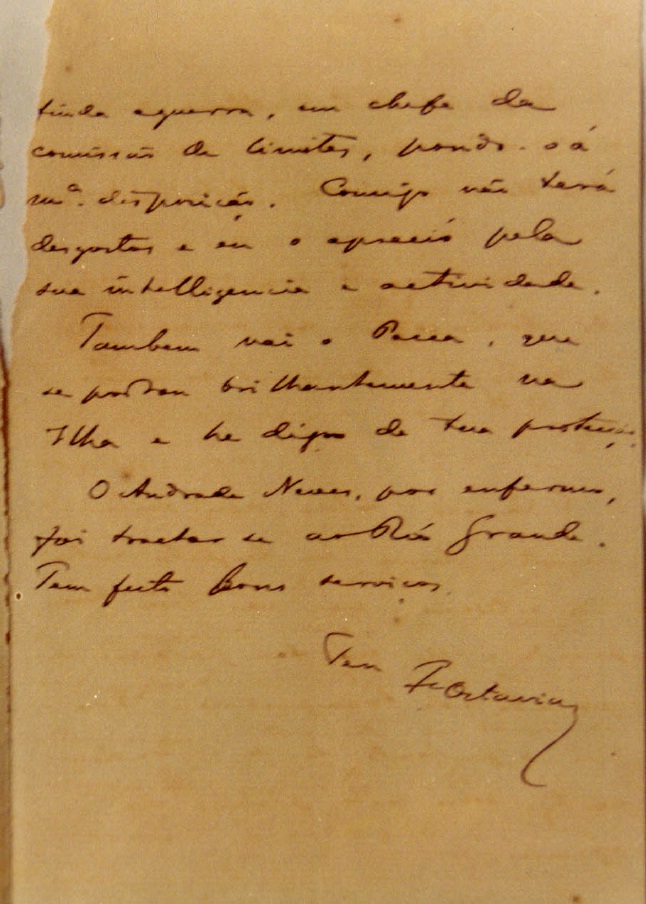 finda a guerra, em chefe da
comissão de limites, pondo-o á
mª. disposição. Comigo não terá
desgostos e eu o aprecio pela
sua intelligencia e actividade.
Tambem vai o Pacca, que
se portou brilhantemente na
Ilha e he digno de tua protecção.
O Andrade Neves, por enfermo,
foi tractar-se ao Rio Grande.
Tem feito bons serviços.
Teu F. Octaviano